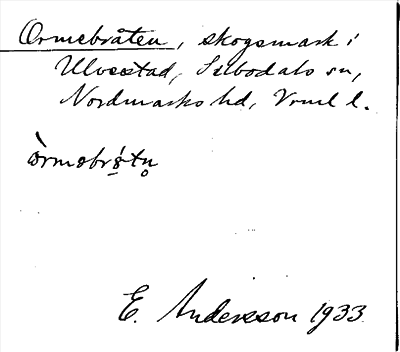 Ormebråten, skogsmark i
Ulvsstad, Silbodals sn,
Nordmarks hd, Vrml l.
E. Andersson 1933